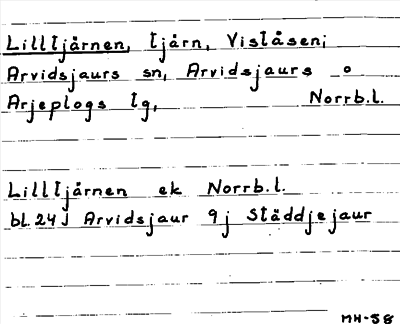 Lilltjärnen, tjärn, Viståsen;
Arvidsjaurs sn, Arvidsjaurs o
Arjeplogs tg, Norrb.l.
Lilltjärnen ek Norrb.l.
bl 24J Arvidsjaur 9j Städdjejaur
MH-58